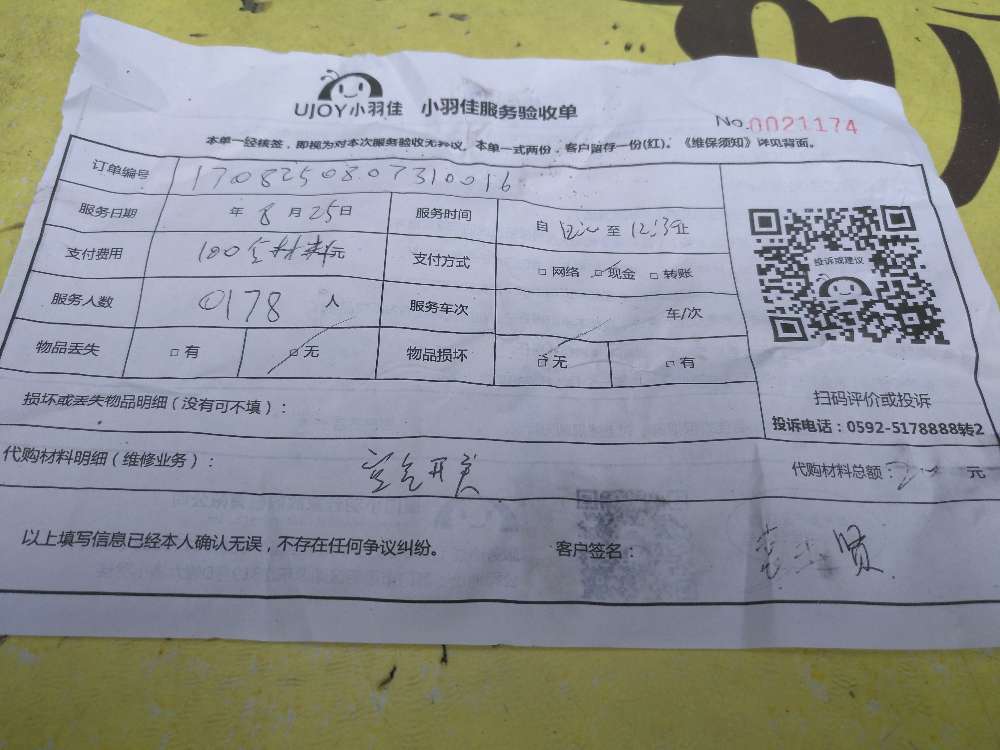 UJOY小羽佳 小羽佳服务验收单
No.0021174
本单一经核签，即视为对本次服务验收无异议。本单一式两份，客户留存一份(红)。《维保须知》详见背面。
订单编号 1708250807310016
服务日期 年 8 月 25 日 服务时间 自 至 止
支付费用 100含材料元 支付方式 □ 网络 □ 现金 □ 转账
服务人数 0178 人 服务车次 车/次
物品丢失 □ 有 □ 无 物品损坏 □ 无 □ 有
投诉或建议
扫码评价或投诉
投诉电话：0592-5178888转2
损坏或丢失物品明细（没有可不填）：
代购材料明细（维修业务）： 空气开关 代购材料总额： 元
以上填写信息已经本人确认无误，不存在任何争议纠纷。 客户签名： 贤